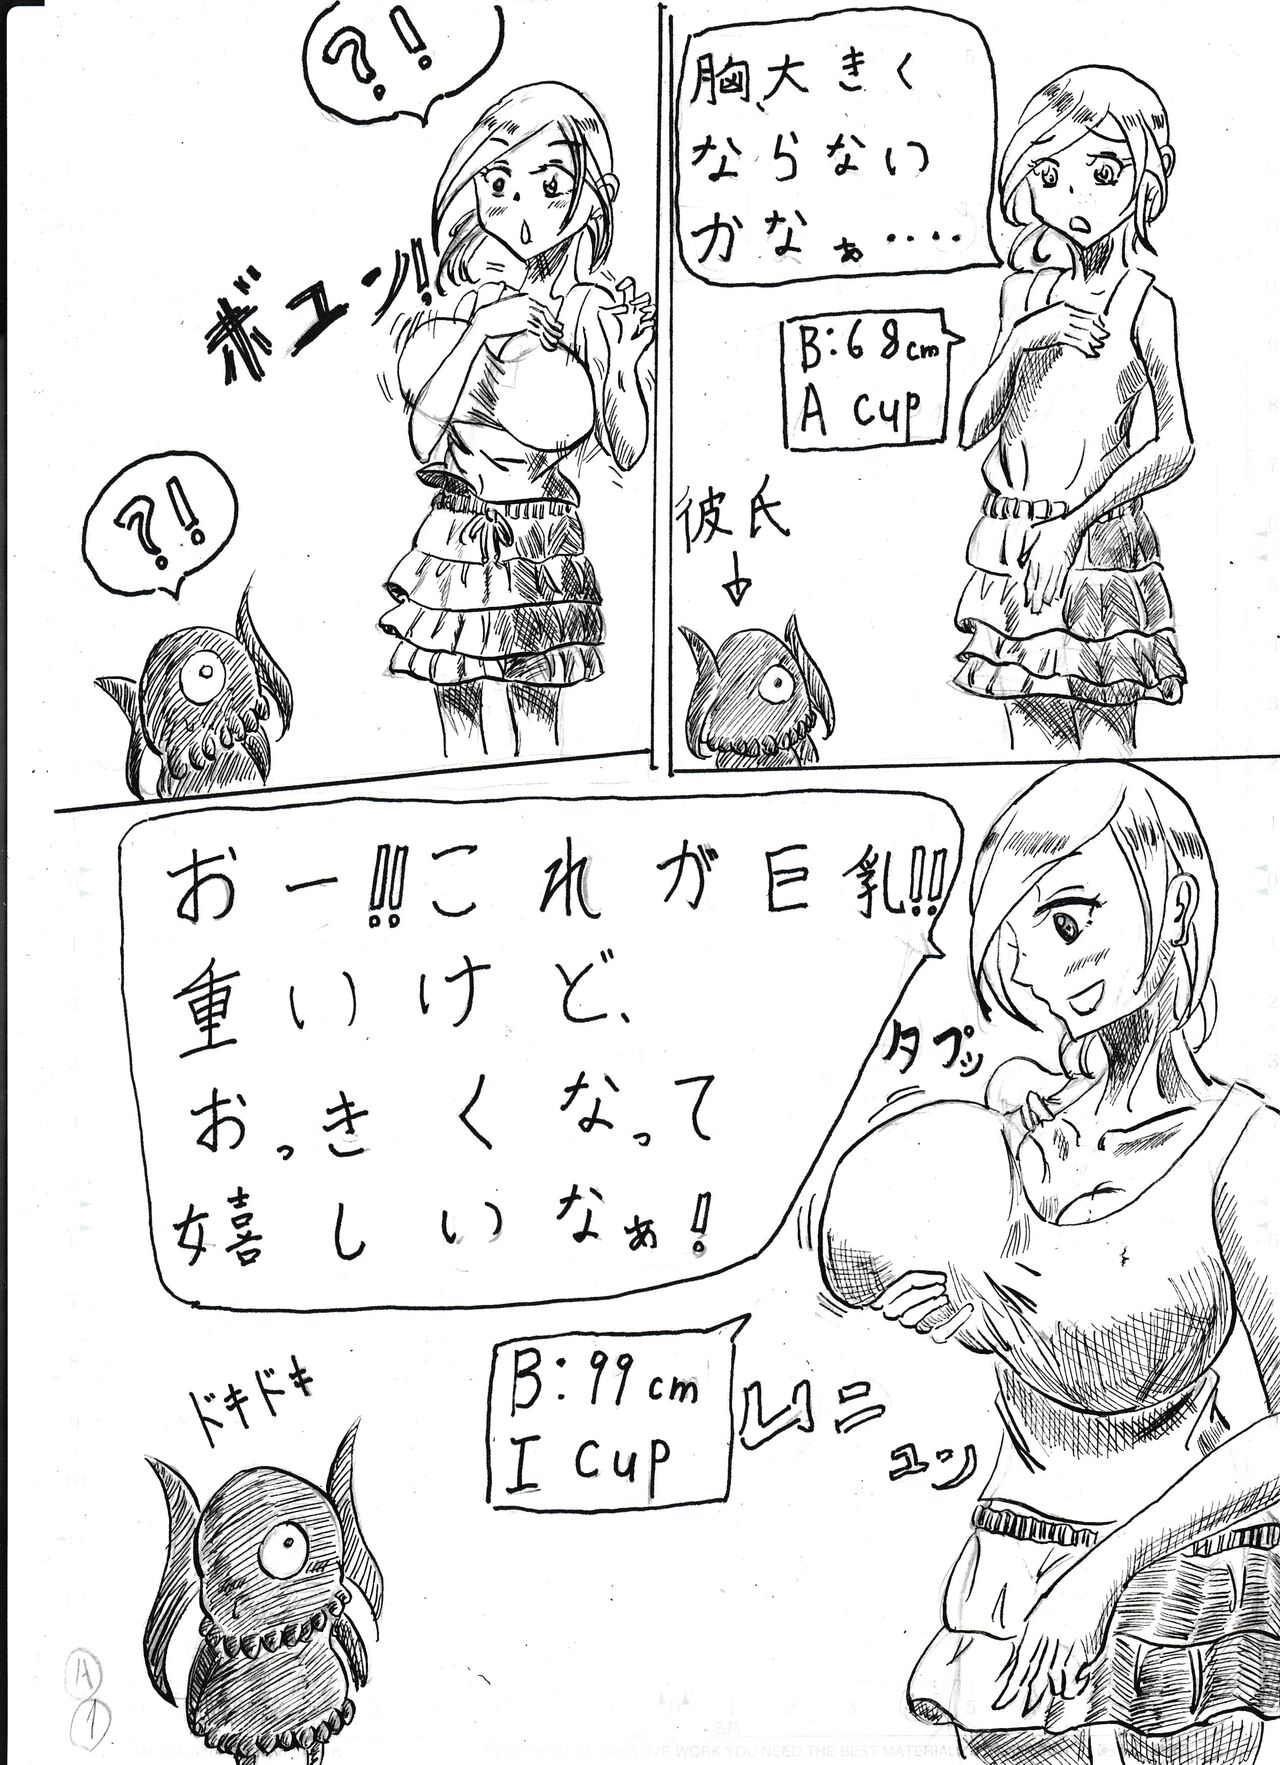 胸、大きく
ならない
かなぁ‥‥
B:68cm
A cup
彼氏
↓
?!
ボユン!!
?!
おー!!!これが巨乳!!
重いけど、
おっきくなって
嬉しいなぁ!
タプッ
B:99cm
I cup
ムニ
ユン
ドキドキ
A
1